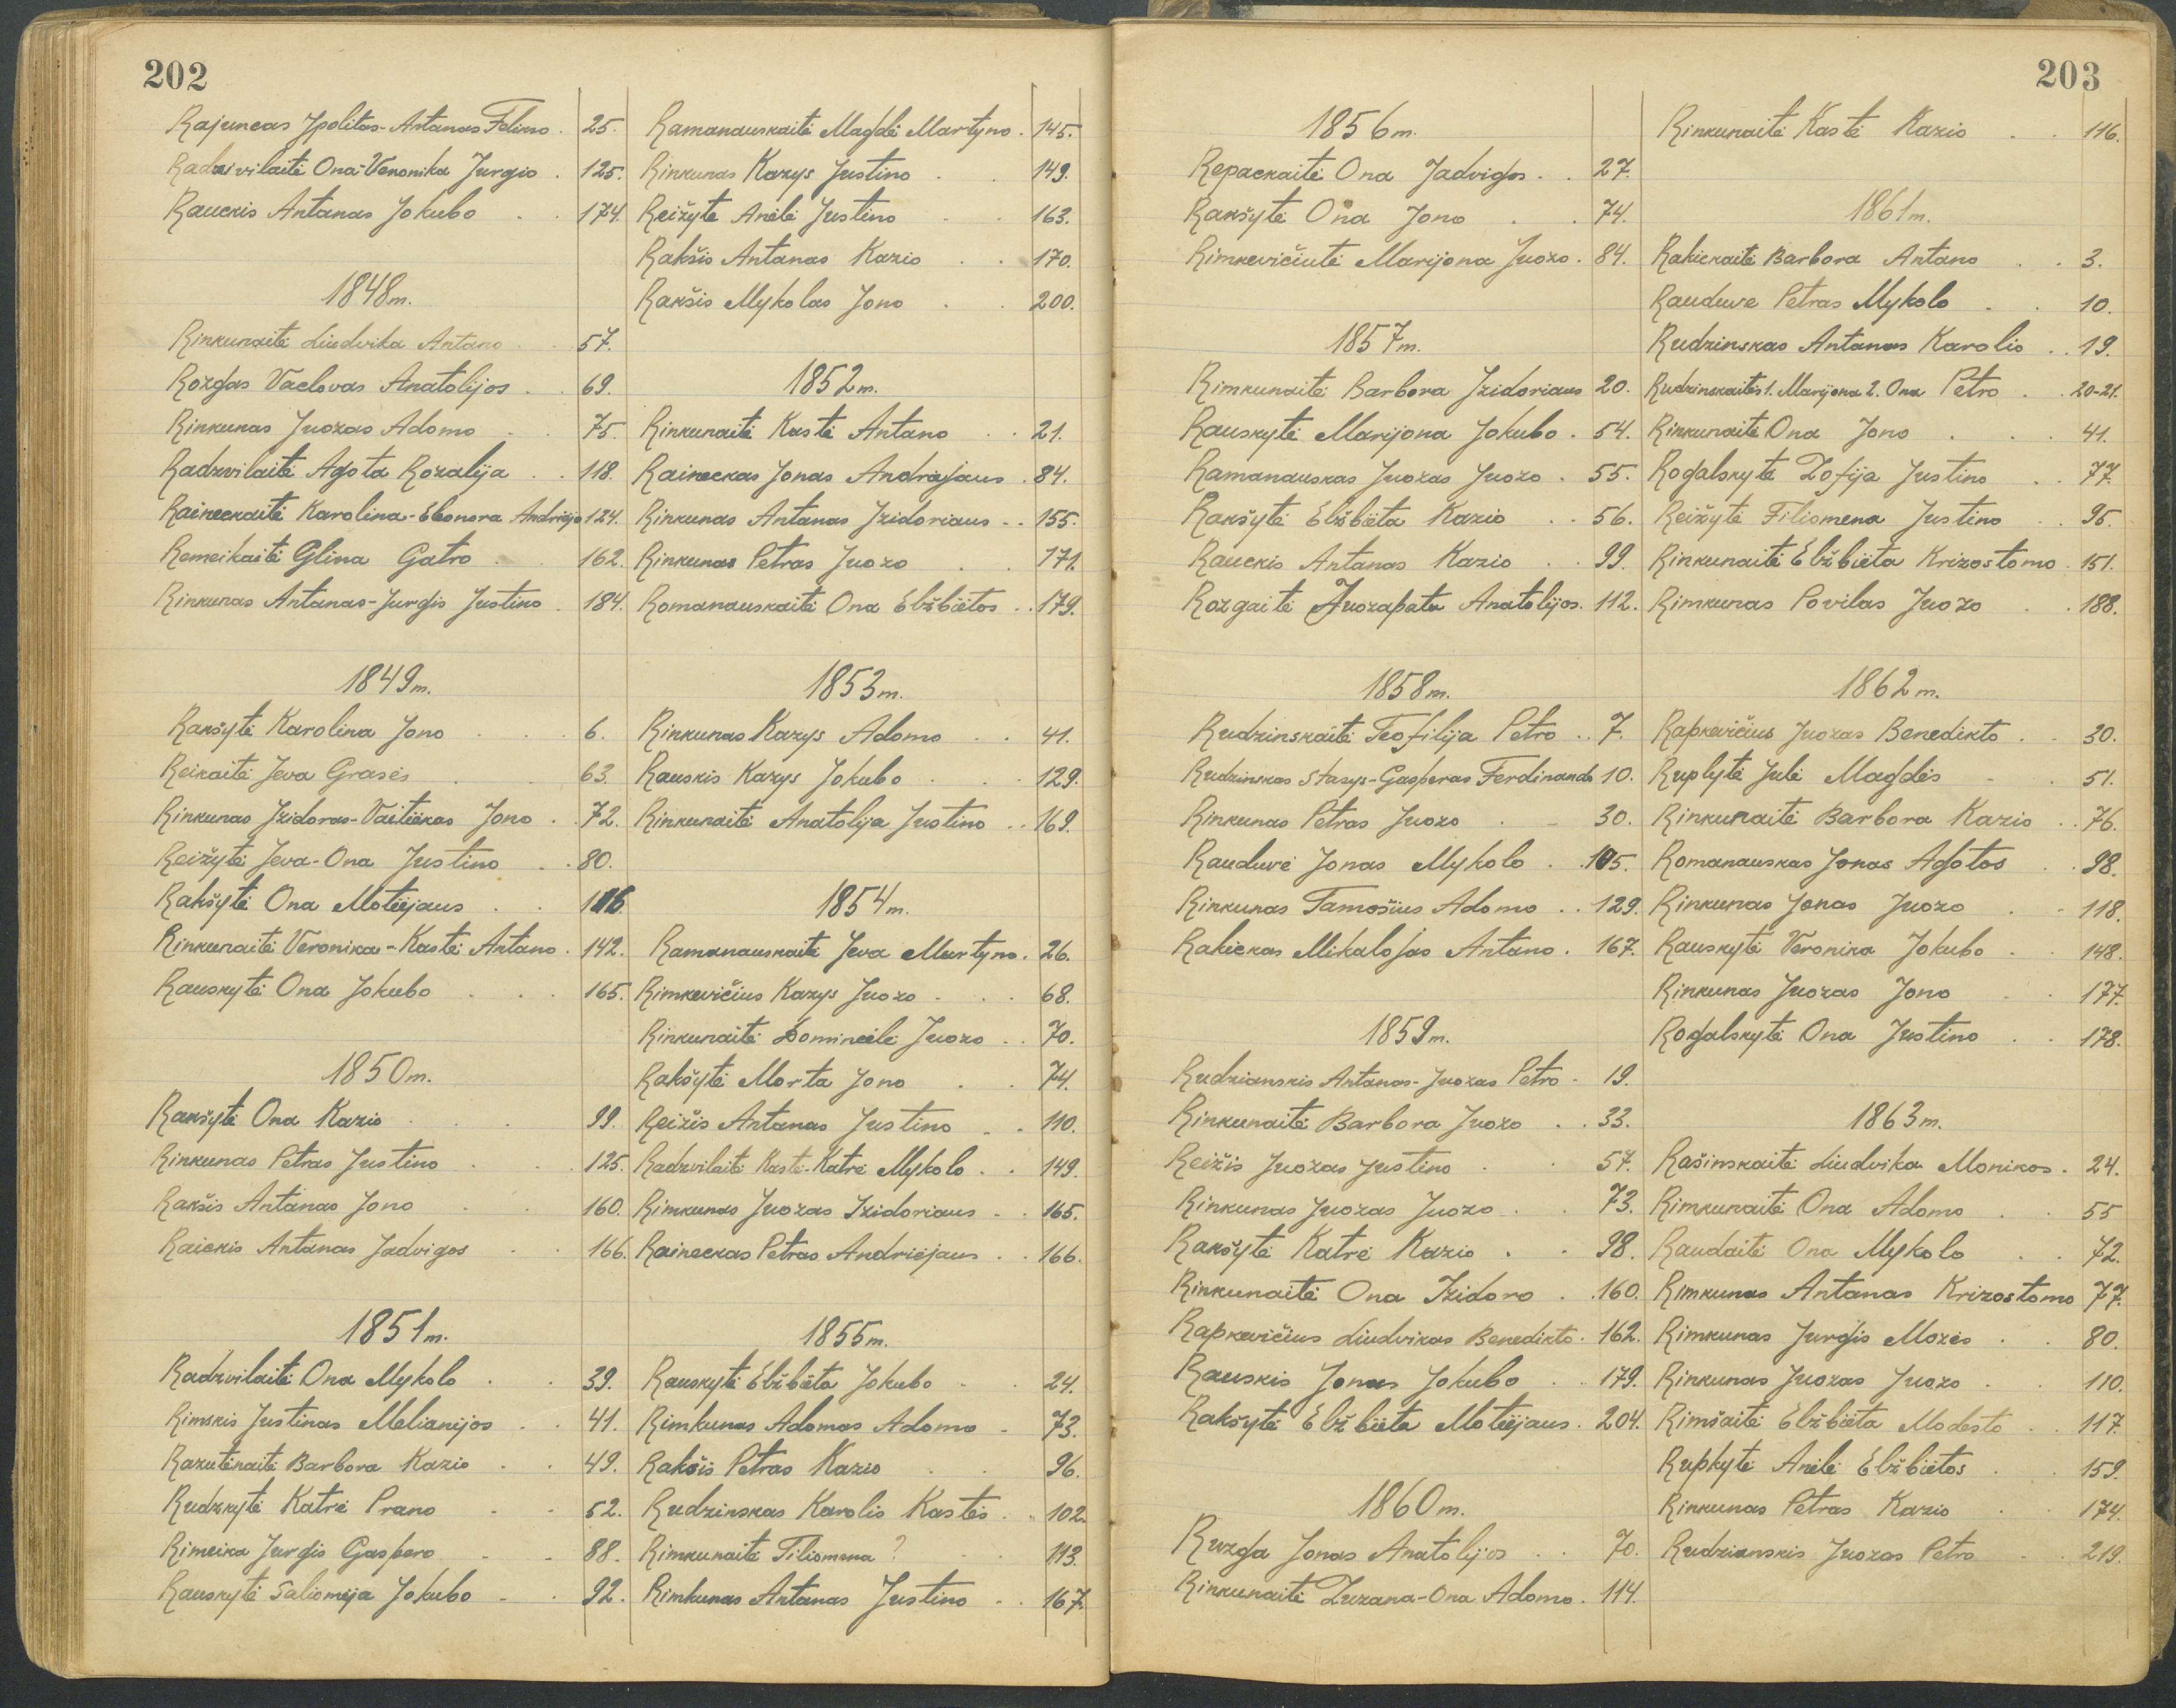 202
Rajuncas Ipolitas-Antanas Felikso . 25.
Radzivilaitė Ona-Veronika Jurgio . 125.
Rauckis Antanas Jokubo . . 174.
1848 m.
Rinkunaitė Liudvika Antano . . 57.
Rozgas Vaclovas Anatolijos . . 69.
Rinkunas Juozas Adomo . . 75.
Radzvilaitė Agota Rozalija . . 118.
Raineckaitė Karolina-Eleonora Andriejo 124.
Remeikaitė Glina Gatro . . 162.
Rinkunas Antanas-Jurgis Justino . 184.
1849 m.
Rakšytė Karolina Jono . . . 6.
Reikaitė Jeva Grasės . . 63.
Rinkunas Izidoras-Vaitiekas Jono . . 72.
Reižytė Jeva-Ona Justino . . 80.
Rakšytė Ona Motiejaus . . 116.
Rinkunaitė Veronika-Kastė Antano . 142.
Rauskytė Ona Jokubo . . . 165.
1850 m.
Rakšytė Ona Kazio . . . 99.
Rinkunas Petras Justino . . . 125.
Rakšis Antanas Jono . . 160.
Raickis Antanas Jadvigos . . 166.
1851 m.
Radzvilaitė Ona Mykolo . . 39.
Rimskis Justinas Melianijos . . 41.
Razutėnaitė Barbora Kazio . . 49.
Rudzkytė Katrė Prano . . 52.
Rimeika Jurgis Gaspero . . 88.
Rauskytė Saliomėja Jokubo . . 92.
Ramanauskaitė Magdė Martyno . 145.
Rinkunas Kazys Justino . . 149.
Reižytė Anėlė Justino . . 163.
Rakšis Antanas Kazio . . 170.
Rakšis Mykolas Jono . . 200.
1852 m.
Rinkunaitė Kastė Antano . . 21.
Raineckas Jonas Andriejaus . 84.
Rinkunas Antanas Izidoriaus . . 155.
Rinkunas Petras Juozo . . 171.
Romanauskaitė Ona Elžbiėtos . . 179.
1853 m.
Rinkunas Kazys Adomo . . 41.
Rauskis Kazys Jokubo . . . 129.
Rinkunaitė Anatolija Justino . . 169.
1854 m.
Ramanauskaitė Jeva Martyno . 26.
Rimkevičius Kazys Juozo . . . 68.
Rinkunaitė Domincėlė Juozo . . 70.
Rakšytė Morta Jono . . 74.
Reižis Antanas Justino . . 110.
Radzvilaitė Kastė-Katrė Mykolo . . 149.
Rimkunas Juozas Izidoriaus . . 165.
Raineckas Petras Andriėjaus . . 166.
1855 m.
Rauskytė Elžbiėta Jokubo . . 24.
Rimkunas Adomas Adomo . 73.
Rakšis Petras Kazio . . 96.
Rudzinskas Karolis Kastės . . 102.
Rimkunaitė Filiomena ? . . 113.
Rimkunas Antanas Justino . . 167.
203
1856 m.
Repackaitė Ona Jadvigos . . 27.
Rakšytė Ona Jono . . 74.
Rimkevičiutė Marijona Juozo . 84.
1857 m.
Rimkunaitė Barbora Izidoriaus 20.
Rauskytė Marijona Jokubo . 54.
Ramanauskas Juozas Juozo . 55.
Rakšytė Elžbiėta Kazio . . 56.
Rauckis Antanas Kazio . . 99.
Rozgaitė Juozapata Anatolijos . 112.
1858 m.
Rudzinskaitė Teofilija Petro . . 7.
Rudzinskas Stasys-Gasperas Ferdinando 10.
Rinkunas Petras Juozo . . 30.
Rauduvė Jonas Mykolo . . 105.
Rinkunas Tamošius Adomo . . 129.
Rakickas Mikalojas Antano . 167.
1859 m.
Rudzianskis Antanas-Juozas Petro . 19.
Rinkunaitė Barbora Juozo . . 33.
Reižis Juozas Justino . . 57.
Rinkunas Juozas Juozo . . 73.
Rakšytė Katrė Kazio . . 98.
Rinkunaitė Ona Izidoro . . 160.
Rapkevičius Liudvikas Benedikto . 162.
Rauskis Jonas Jokubo . . 179.
Rakšytė Elžbiėta Motiėjaus . 204.
1860 m.
Ruzga Jonas Anatolijos . . 70.
Rinkunaitė Zuzana-Ona Adomo . 114.
Rinkunaitė Kastė Kazio . . 116.
1861 m.
Rakickaitė Barbora Antano . . 3.
Rauduve Petras Mykolo . . 10.
Rudzinskas Antanas Karolio . . 19.
Rudzinskaitės 1. Marijona 2. Ona Petro . . 20-21.
Rinkunaitė Ona Jono . . . 41.
Rogalskytė Zofija Justino . . 77.
Reižytė Filiomena Justino . . 95.
Rinkunaitė Elžbiėta Krizostomo . 151.
Rimkunas Povilas Juozo . . 188.
1862 m.
Rapkevičius Juozas Benedikto . . 30.
Ruplytė Julė Magdės . . 51.
Rinkunaitė Barbora Kazio . . 76.
Romanauskas Jonas Agotos . . 98.
Rinkunas Jonas Juozo . . 118.
Rauskytė Veronika Jokubo . . 148.
Rinkunas Juozas Jono . . 177.
Rogalskytė Ona Justino . . 178.
1863 m.
Rašinskaitė Liudvika Monikos . 24.
Rimkunaitė Ona Adomo . . 55
Raudaitė Ona Mykolo . . 72.
Rimkunas Antanas Krizostomo 77.
Rimkunas Jurgis Mozės . . 80.
Rinkunas Juozas Juozo . . 110.
Rimšaitė Elžbiėta Modesto . . 117.
Rupkytė Anėlė Elžbiėtos . . 159.
Rinkunas Petras Kazio . . 174.
Rudzianskis Juozas Petro . . 219.